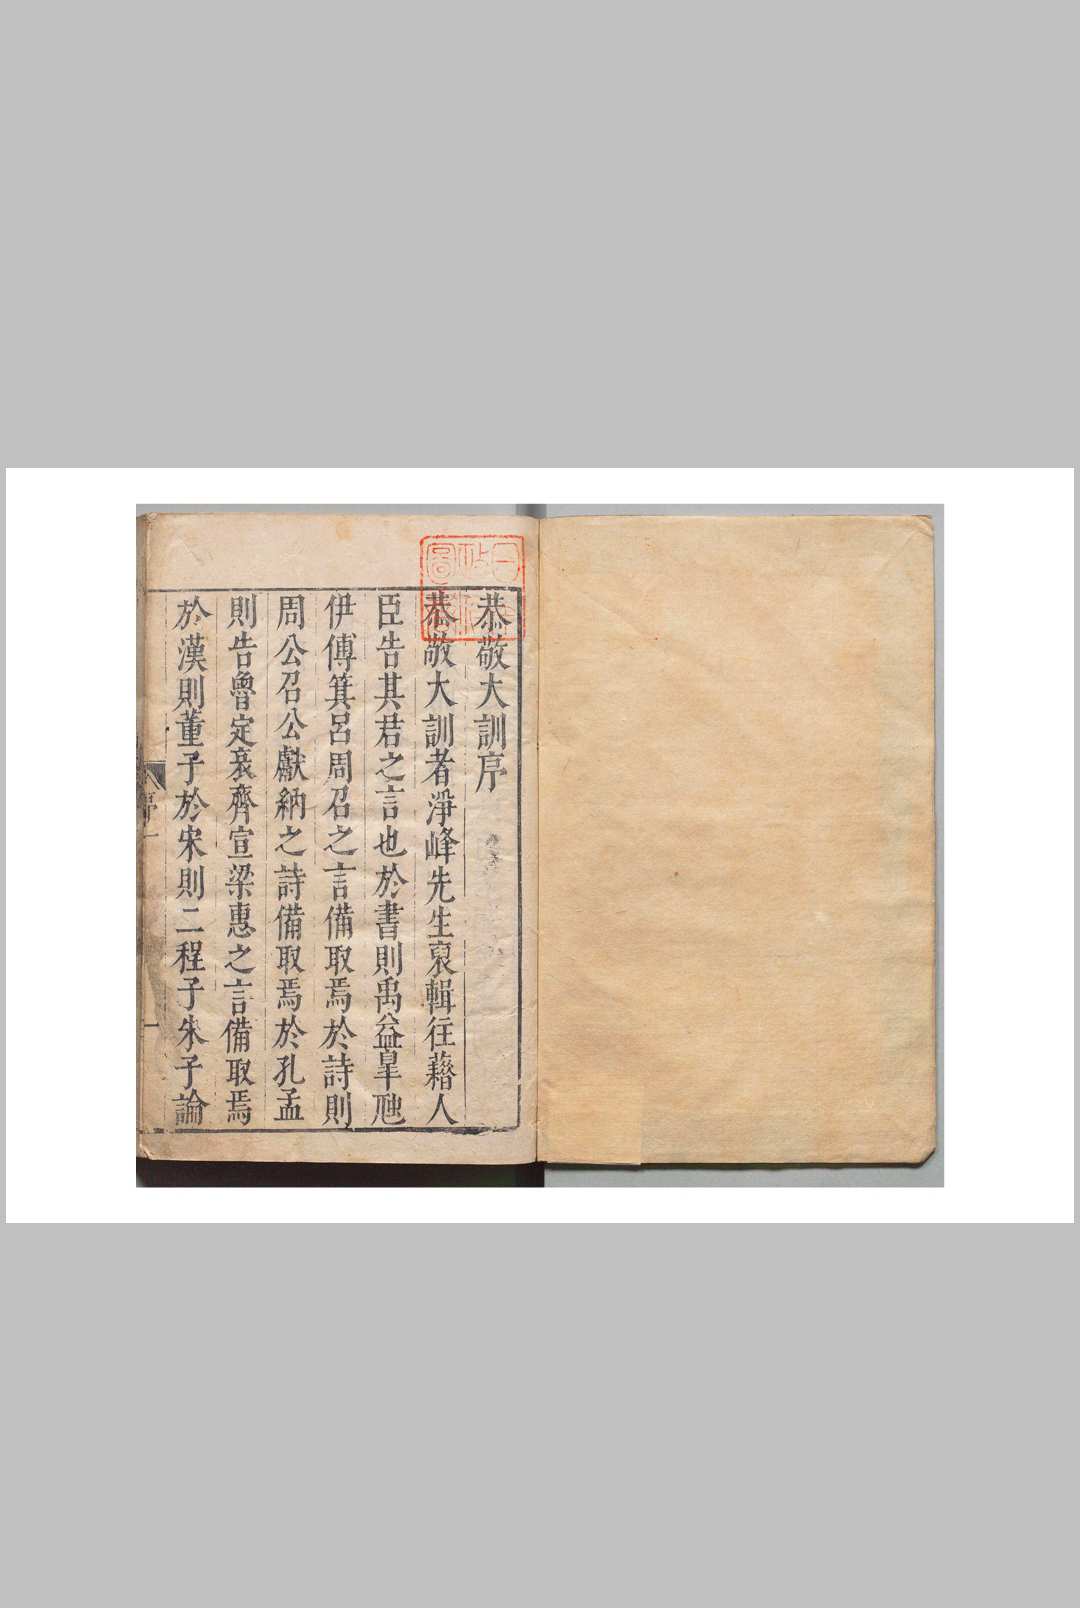 恭敬大訓序
恭敬大訓者淨峰先生裒輯往藉人
臣告其君之言也於書則禹益臯虺
伊傅箕呂周召之言備取焉於詩則
周公召公獻納之詩備取焉於孔孟
則告魯定哀齊宣梁惠之言備取焉
於漢則董子於宋則二程子朱子論
序 一